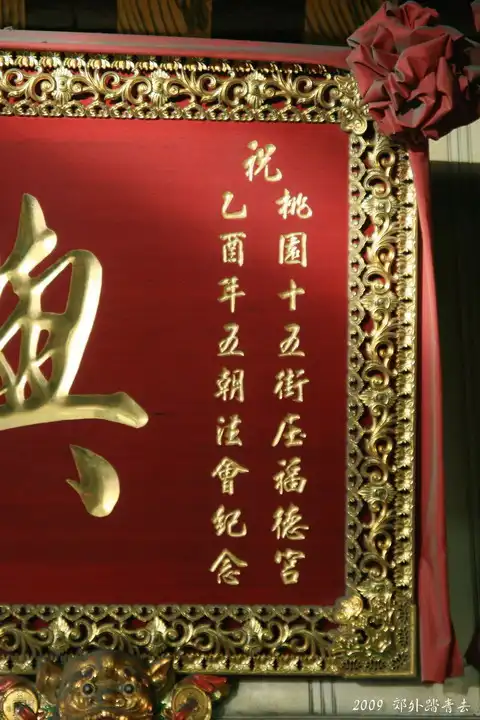 祝
桃園十五街庄福德宮
乙酉年五朝法會紀念
2009 郊外踏青去